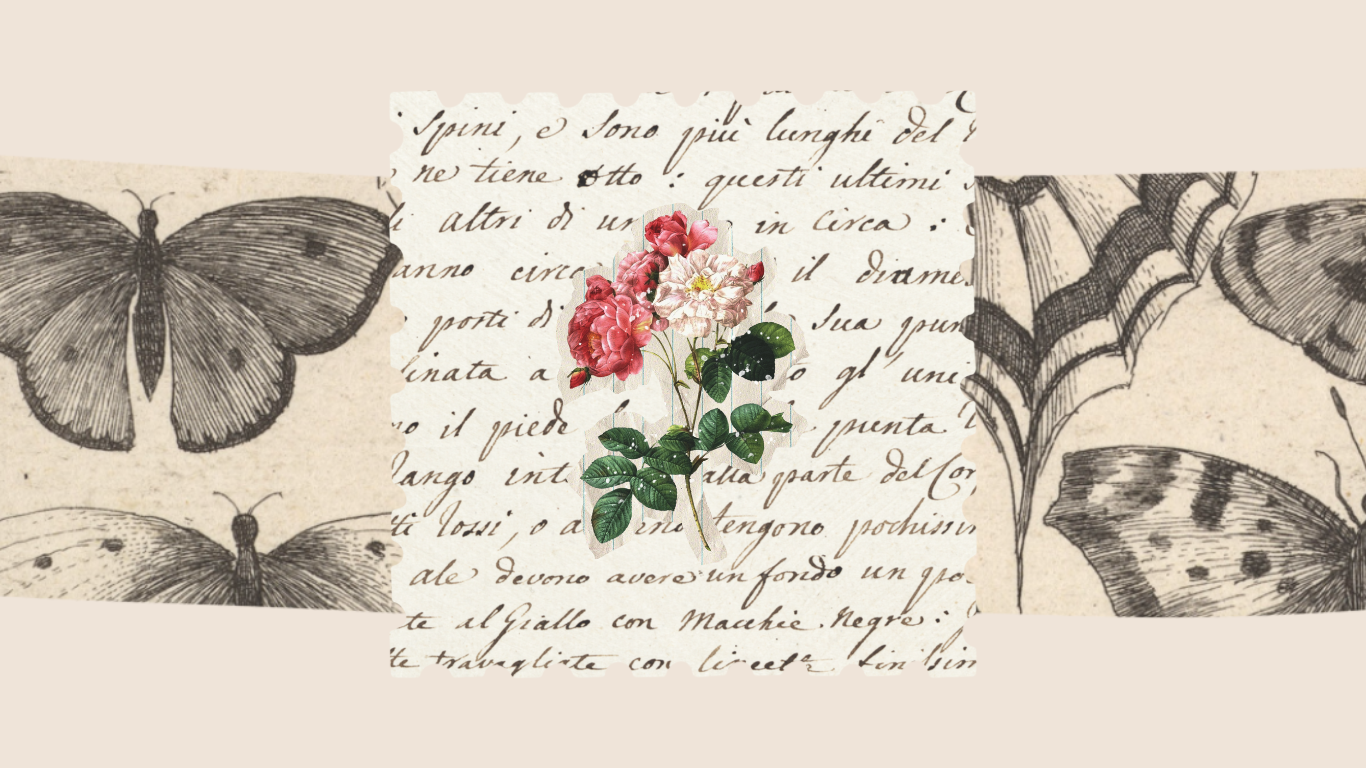 Spini, e sono più lunghi del
ne tiene otto : questi ultimi
altri di un in circa :
anno circa il diame
porti di sua pun
inata a gl' une
il piede punta
lango int alla parte del Cor
Rossi, o a eno tengono pochissim
ale devono avere un fondo un po
te al Giallo con Macchie Negre :
te travagliate con